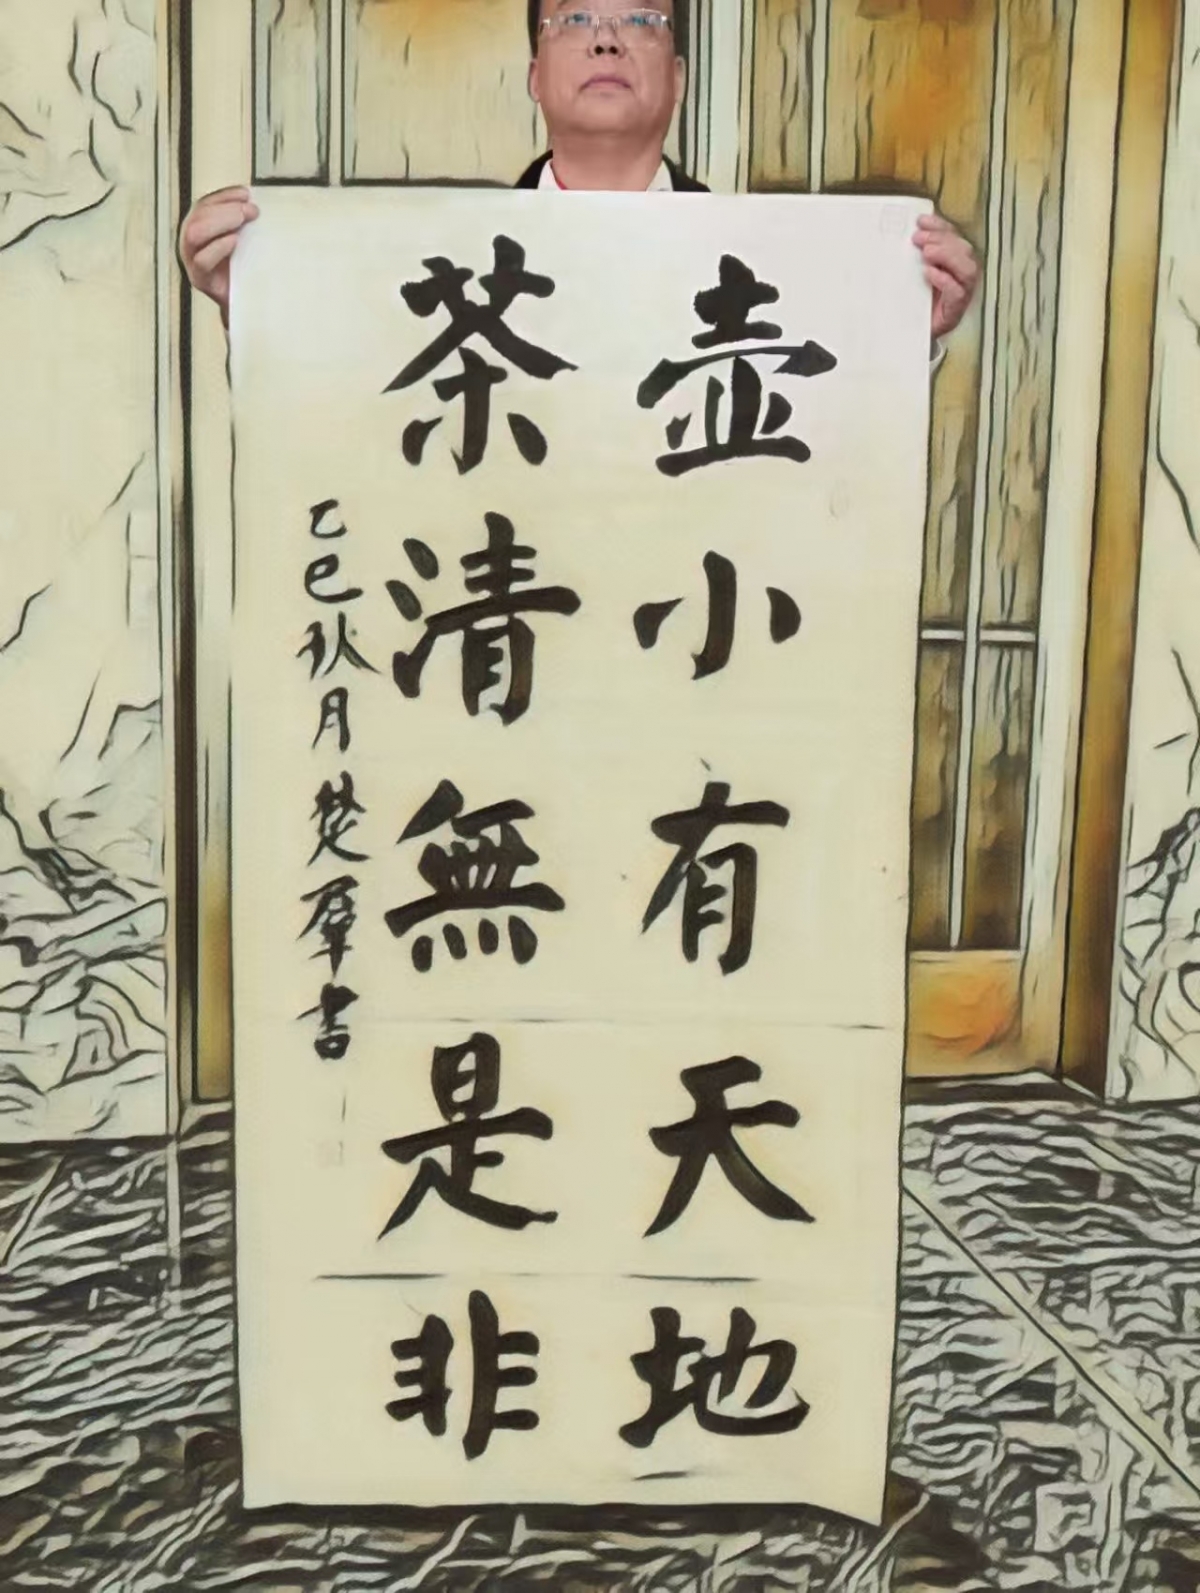 壺小有天地
茶清無是非
乙巳秋月楚羣書